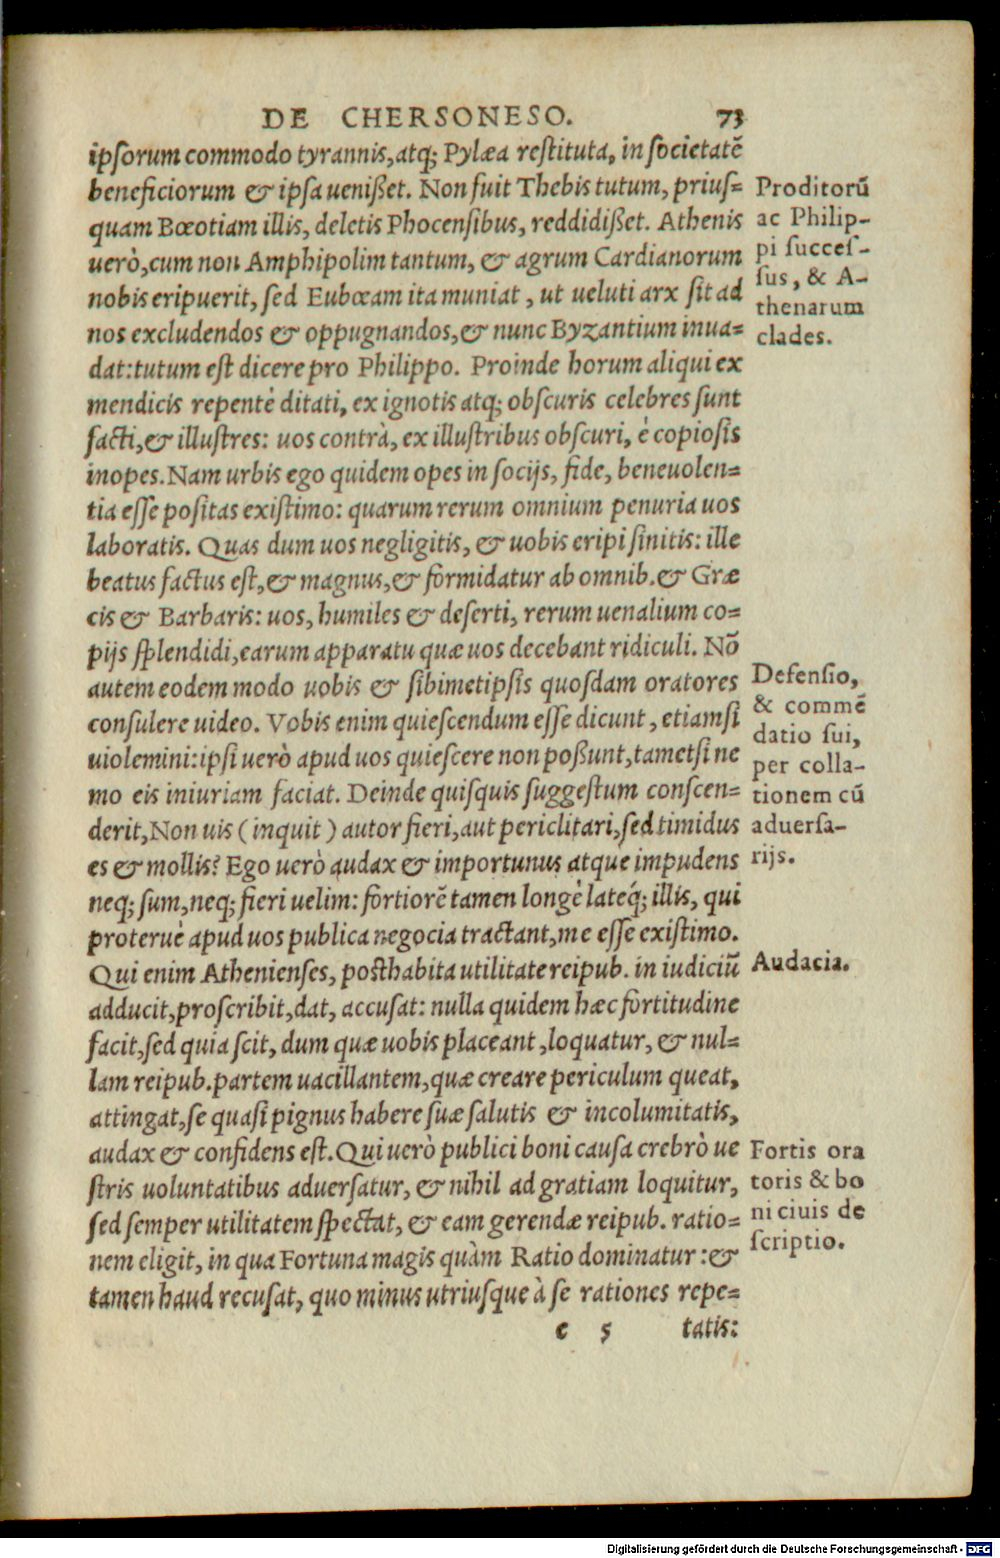 DE CHERSONESO. 73
ipsorum commodo tyrannis, atq; Pylæa restituta, in societatē
beneficiorum & ipsa uenißet. Non fuit Thebis tutum, prius=
quam Bœotiam illis, deletis Phocensibus, reddidißet. Athenis
uerò, cum non Amphipolim tantum, & agrum Cardianorum
nobis eripuerit, sed Eubœam ita muniat, ut ueluti arx sit ad
nos excludendos & oppugnandos, & nunc Byzantium inua=
dat: tutum est dicere pro Philippo. Proinde horum aliqui ex
mendicis repentè ditati, ex ignotis atq; obscuris celebres sunt
facti, & illustres: uos contrà, ex illustribus obscuri, è copiosis
inopes. Nam urbis ego quidem opes in socijs, fide, beneuolen=
tia esse positas existimo: quarum rerum omnium penuria uos
laboratis. Quas dum uos negligitis, & uobis eripi sinitis: ille
beatus factus est, & magnus, & formidatur ab omnib. & Græ
cis & Barbaris: uos, humiles & deserti, rerum uenalium co=
pijs splendidi, earum apparatu quæ uos decebant ridiculi. Nō
autem eodem modo uobis & sibimetipsis quosdam oratores
consulere uideo. Vobis enim quiescendum esse dicunt, etiamsi
uiolemini: ipsi uerò apud uos quiescere non poßunt, tametsi ne
mo eis iniuriam faciat. Deinde quisquis suggestum conscen=
derit, Non uis (inquit) autor fieri, aut periclitari, sed timidus
es & mollis? Ego uerò audax & importunus atque impudens
neq; sum, neq; fieri uelim: fortiorē tamen longè lateq́; illis, qui
proteruè apud uos publica negocia tractant, me esse existimo.
Qui enim Athenienses, posthabita utilitate reipub. in iudiciū
adducit, proscribit, dat, accusat: nulla quidem hæc fortitudine
facit, sed quia scit, dum quæ uobis placeant, loquatur, & nul=
lam reipub. partem uacillantem, quæ creare periculum queat,
attingat, se quasi pignus habere suæ salutis & incolumitatis,
audax & confidens est. Qui uerò publici boni causa crebrò ue
stris uoluntatibus aduersatur, & nihil ad gratiam loquitur,
sed semper utilitatem spectat, & eam gerendæ reipub. ratio=
nem eligit, in qua Fortuna magis quàm Ratio dominatur: &
tamen haud recusat, quo minus utriusque à se rationes repe=
e 5 tatis:
Proditorū
ac Philip-
pi succes-
sus, & A-
thenarum
clades.
Defensio,
& commē
datio sui,
per colla-
tionem cū
aduersa-
rijs.
Audacia.
Fortis ora
toris & bo
ni ciuis de
scriptio.
Digitalisierung gefördert durch die Deutsche Forschungsgemeinschaft - DFG